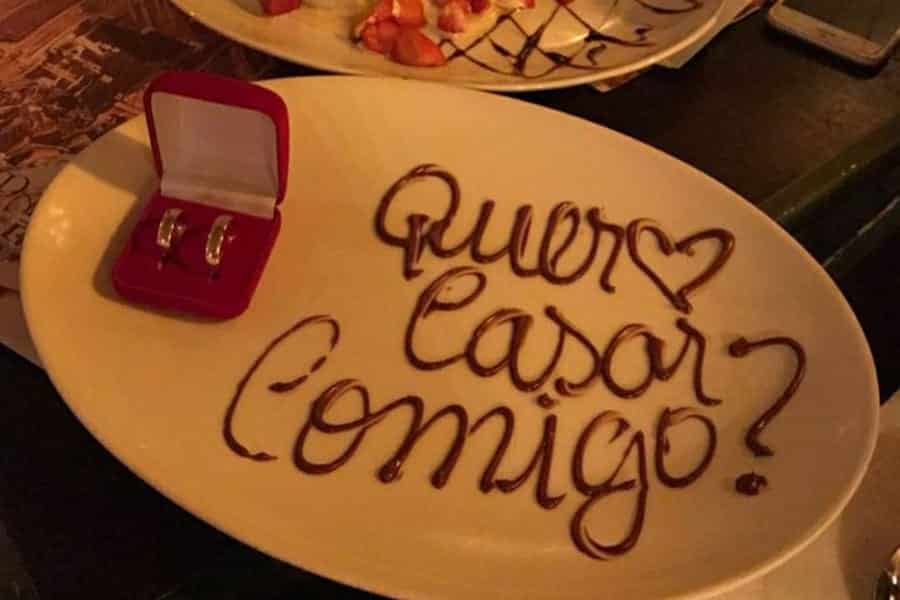 Quer
Casar
Comigo?